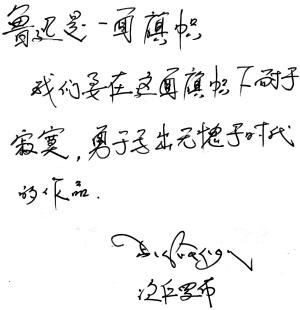 鲁迅是一面旗帜
我们要在这面旗帜下耐于
寂寞，勇于写出无愧于时代
的作品.
次仁罗布